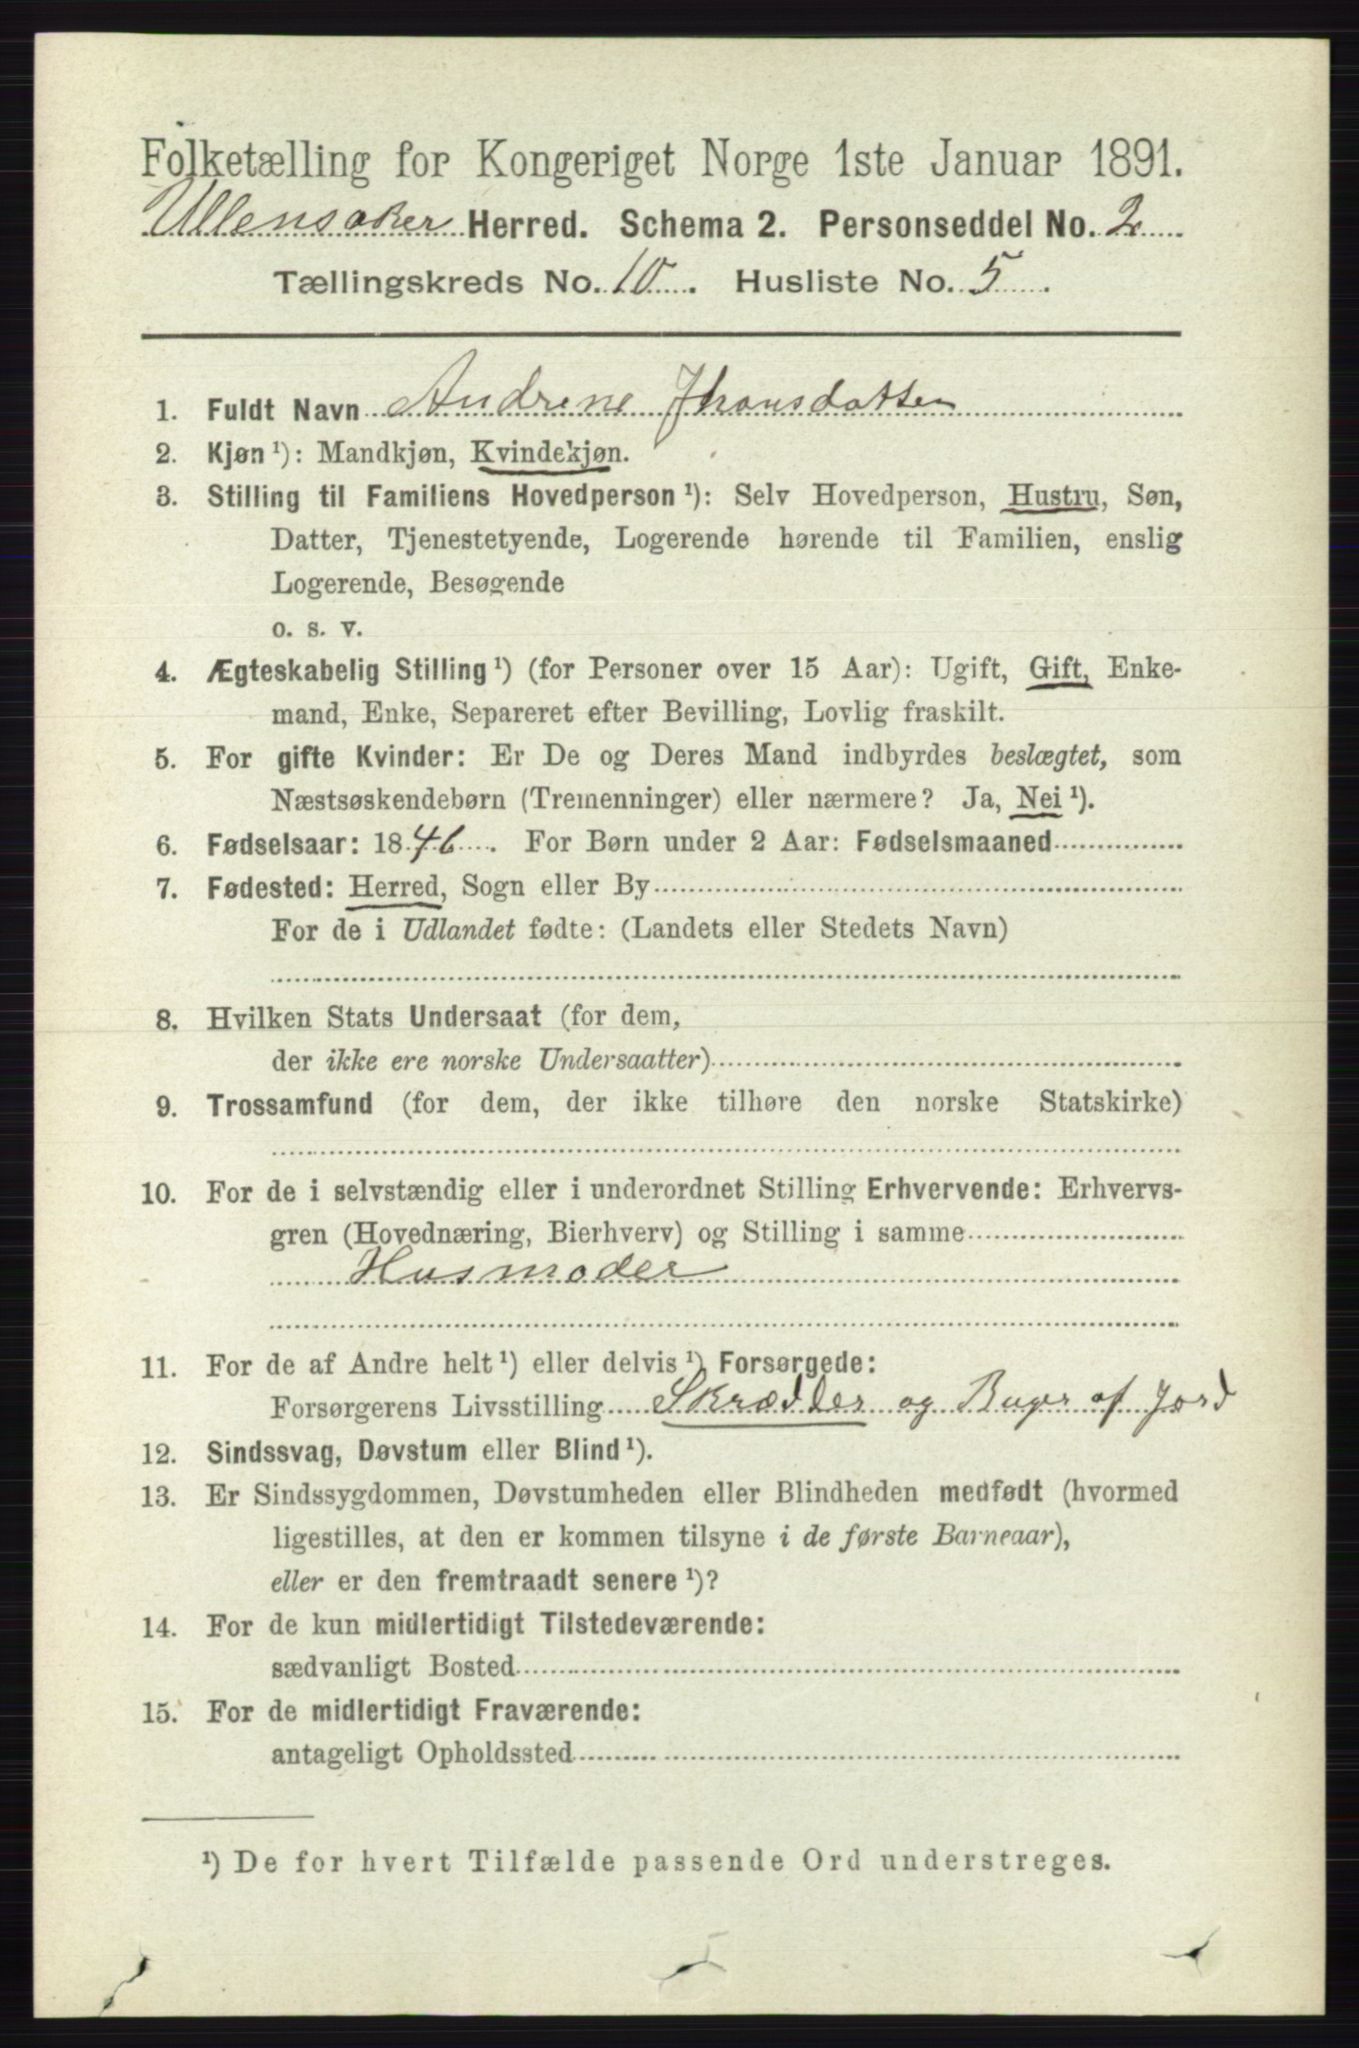 Folketælling for Kongeriget Norge 1ste Januar 1891.
Ullensaker Herred. Schema 2. Personseddel No. 2
Tællingskreds No. 10. Husliste No. 5.
1. Fuldt Navn Andrine
2. Kjøn ¹): Mandkjøn, Kvindekjøn.
3. Stilling til Familiens Hovedperson ¹): Selv Hovedperson, Hustru, Søn,
Datter, Tjenestetyende, Logerende hørende til Familien, enslig
Logerende, Besøgende
o. s. v.
4. Ægteskabelig Stilling ¹) (for Personer over 15 Aar): Ugift, Gift, Enke-
mand, Enke, Separeret efter Bevilling, Lovlig fraskilt.
5. For gifte Kvinder: Er De og Deres Mand indbyrdes beslægtet, som
Næstsøskendebørn (Tremenninger) eller nærmere? Ja, Nei ¹).
6. Fødselsaar: 1846. For Børn under 2 Aar: Fødselsmaaned
7. Fødested: Herred, Sogn eller By
For de i Udlandet fødte: (Landets eller Stedets Navn)
8. Hvilken Stats Undersaat (for dem,
der ikke ere norske Undersaatter)
9. Trossamfund (for dem, der ikke tilhøre den norske Statskirke)
10. For de i selvstændig eller i underordnet Stilling Erhvervende: Erhvervs-
gren (Hovednæring, Bierhverv) og Stilling i samme
Husmoder
11. For de af Andre helt ¹) eller delvis ¹) Forsørgede:
Forsørgerens Livsstilling Skrædder og Buger af Jord
12. Sindssvag, Døvstum eller Blind ¹).
13. Er Sindssygdommen, Døvstumheden eller Blindheden medfødt (hvormed
ligestilles, at den er kommen tilsyne i de første Barneaar),
eller er den fremtraadt senere ¹)?
14. For de kun midlertidigt Tilstedeværende:
sædvanligt Bosted
15. For de midlertidigt Fraværende:
antageligt Opholdssted
¹) De for hvert Tilfælde passende Ord understreges.